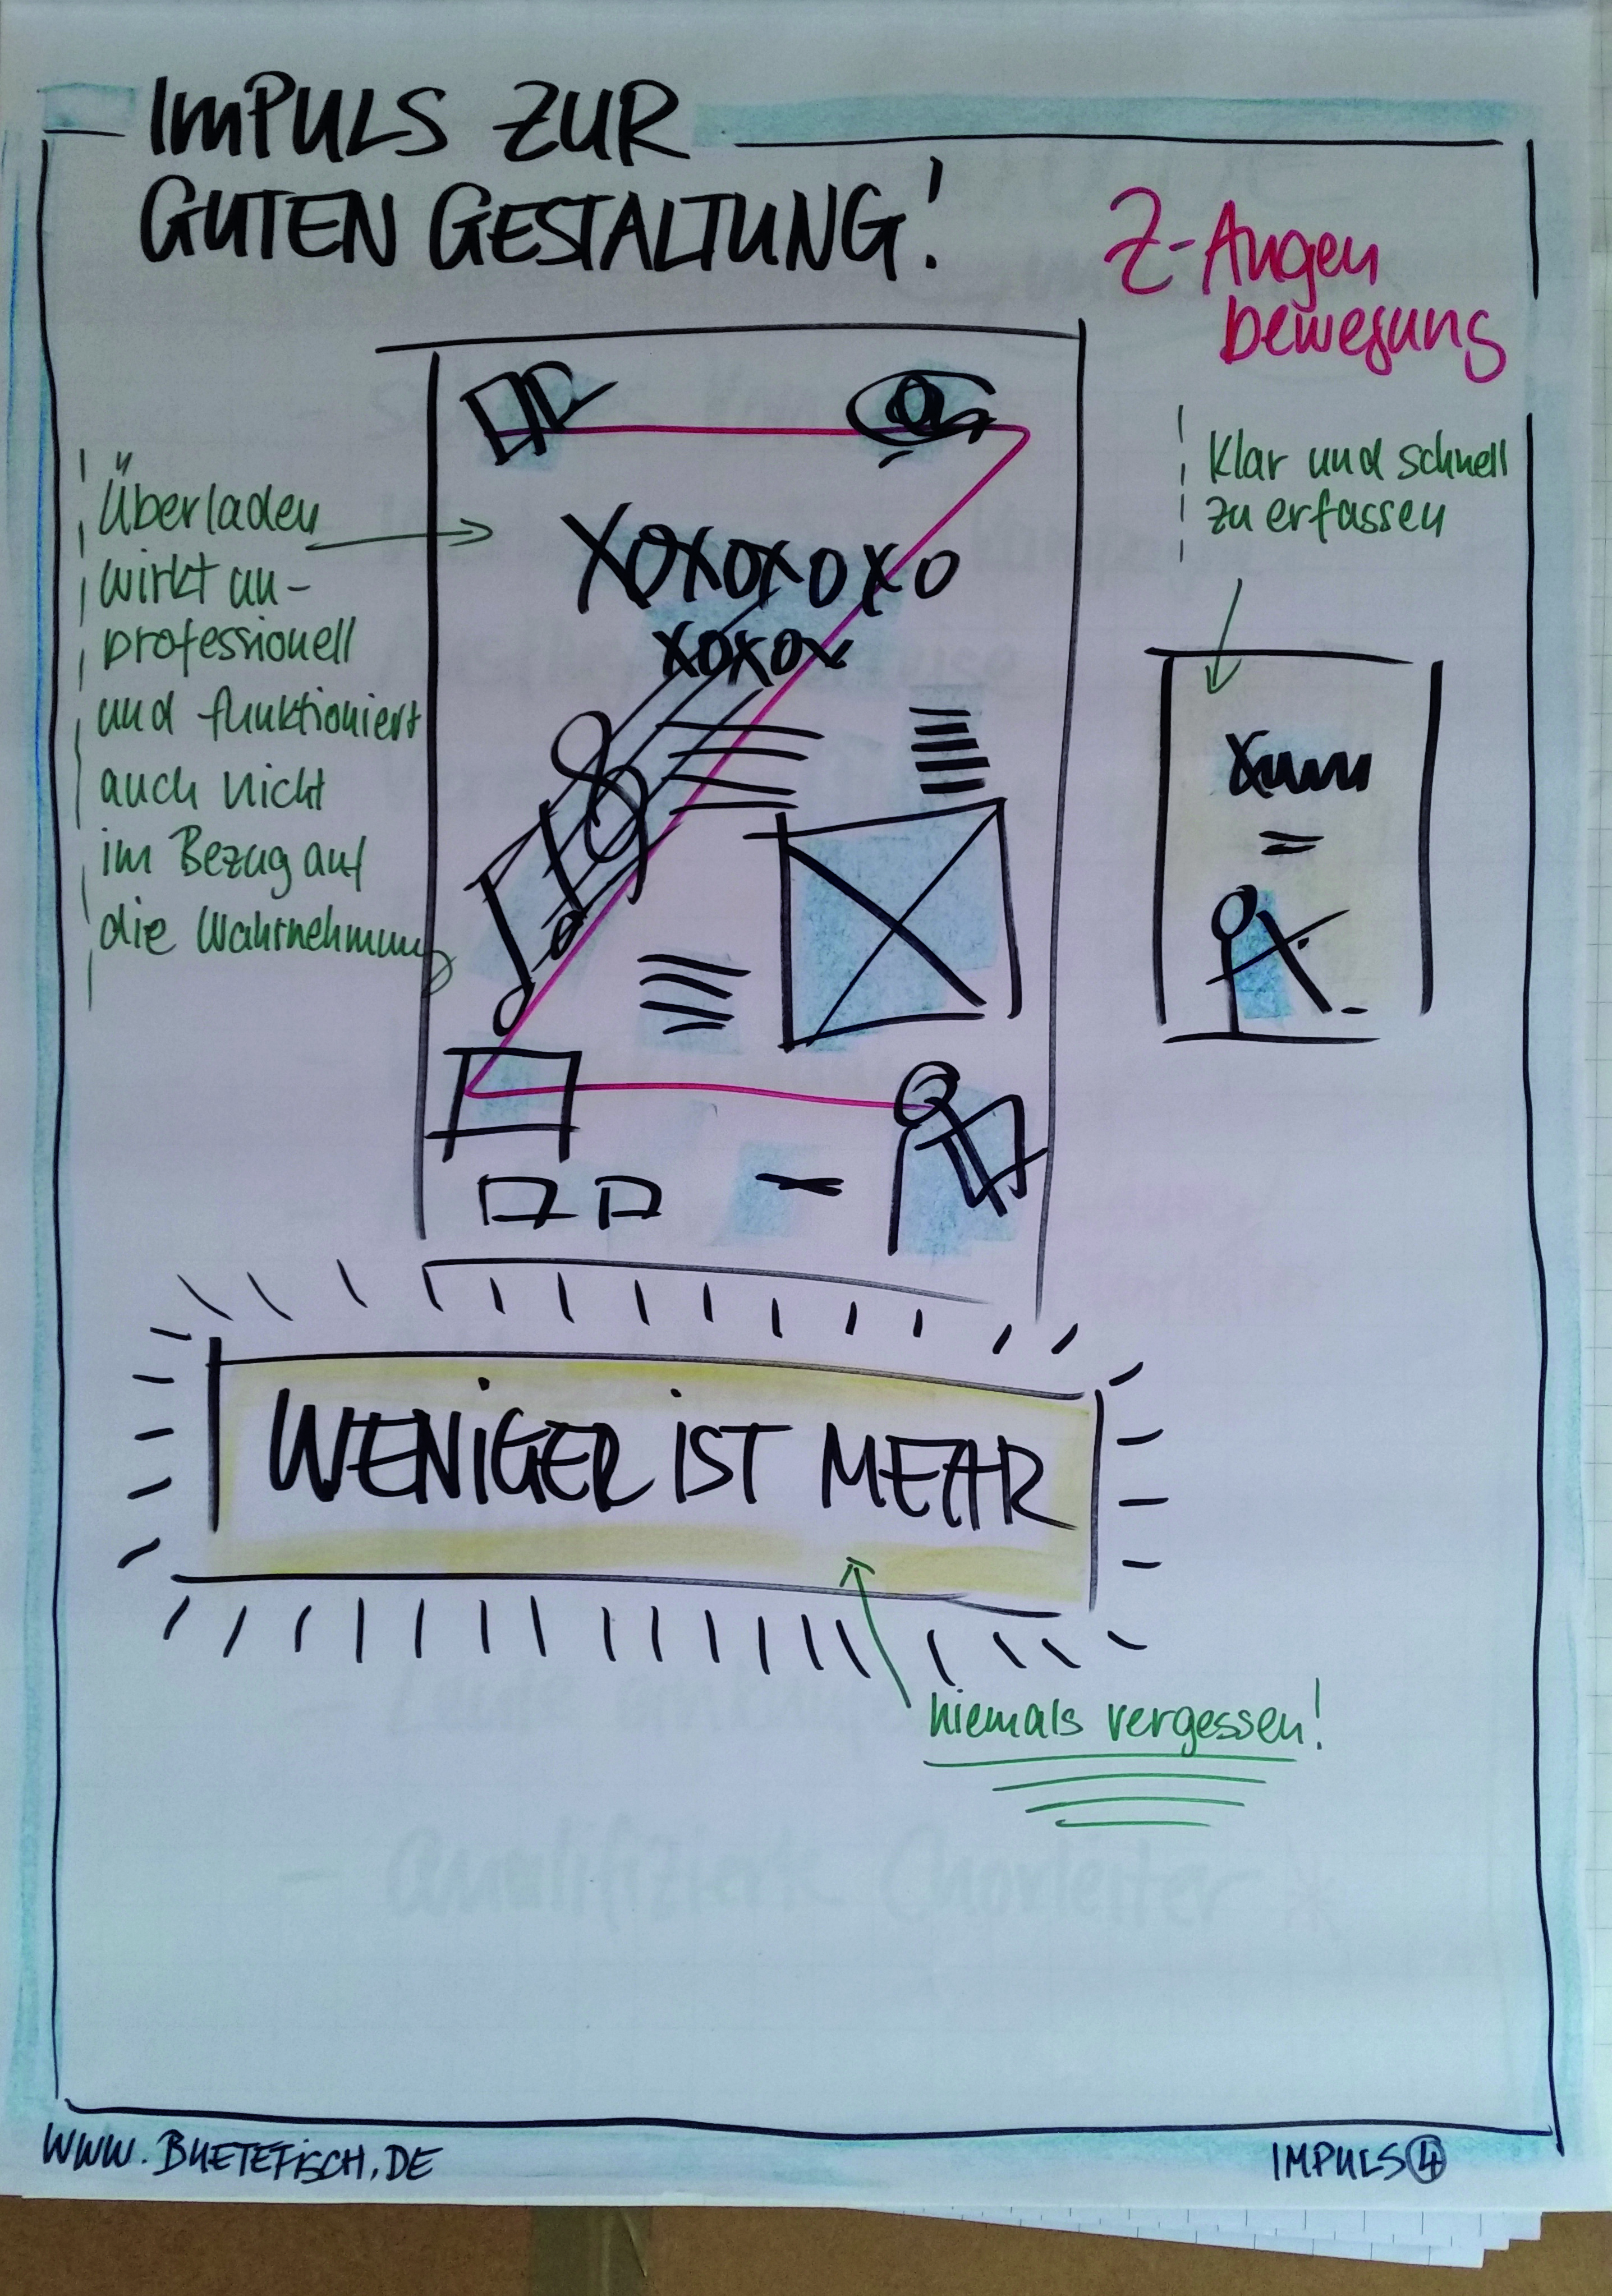 IMPULS ZUR
GUTEN GESTALTUNG!
Z-Augen
bewegung
Überladen
wirkt un-
professionell
und funktioniert
auch nicht
im Bezug auf
die Wahrnehmung
Klar und schnell
zu erfassen
XOXOXOXO
XOXOX
WENIGER IST MEHR
niemals vergessen!
- Qualifizierte Chorleiter *
WWW.BUETEFISCH.DE
IMPULS 4